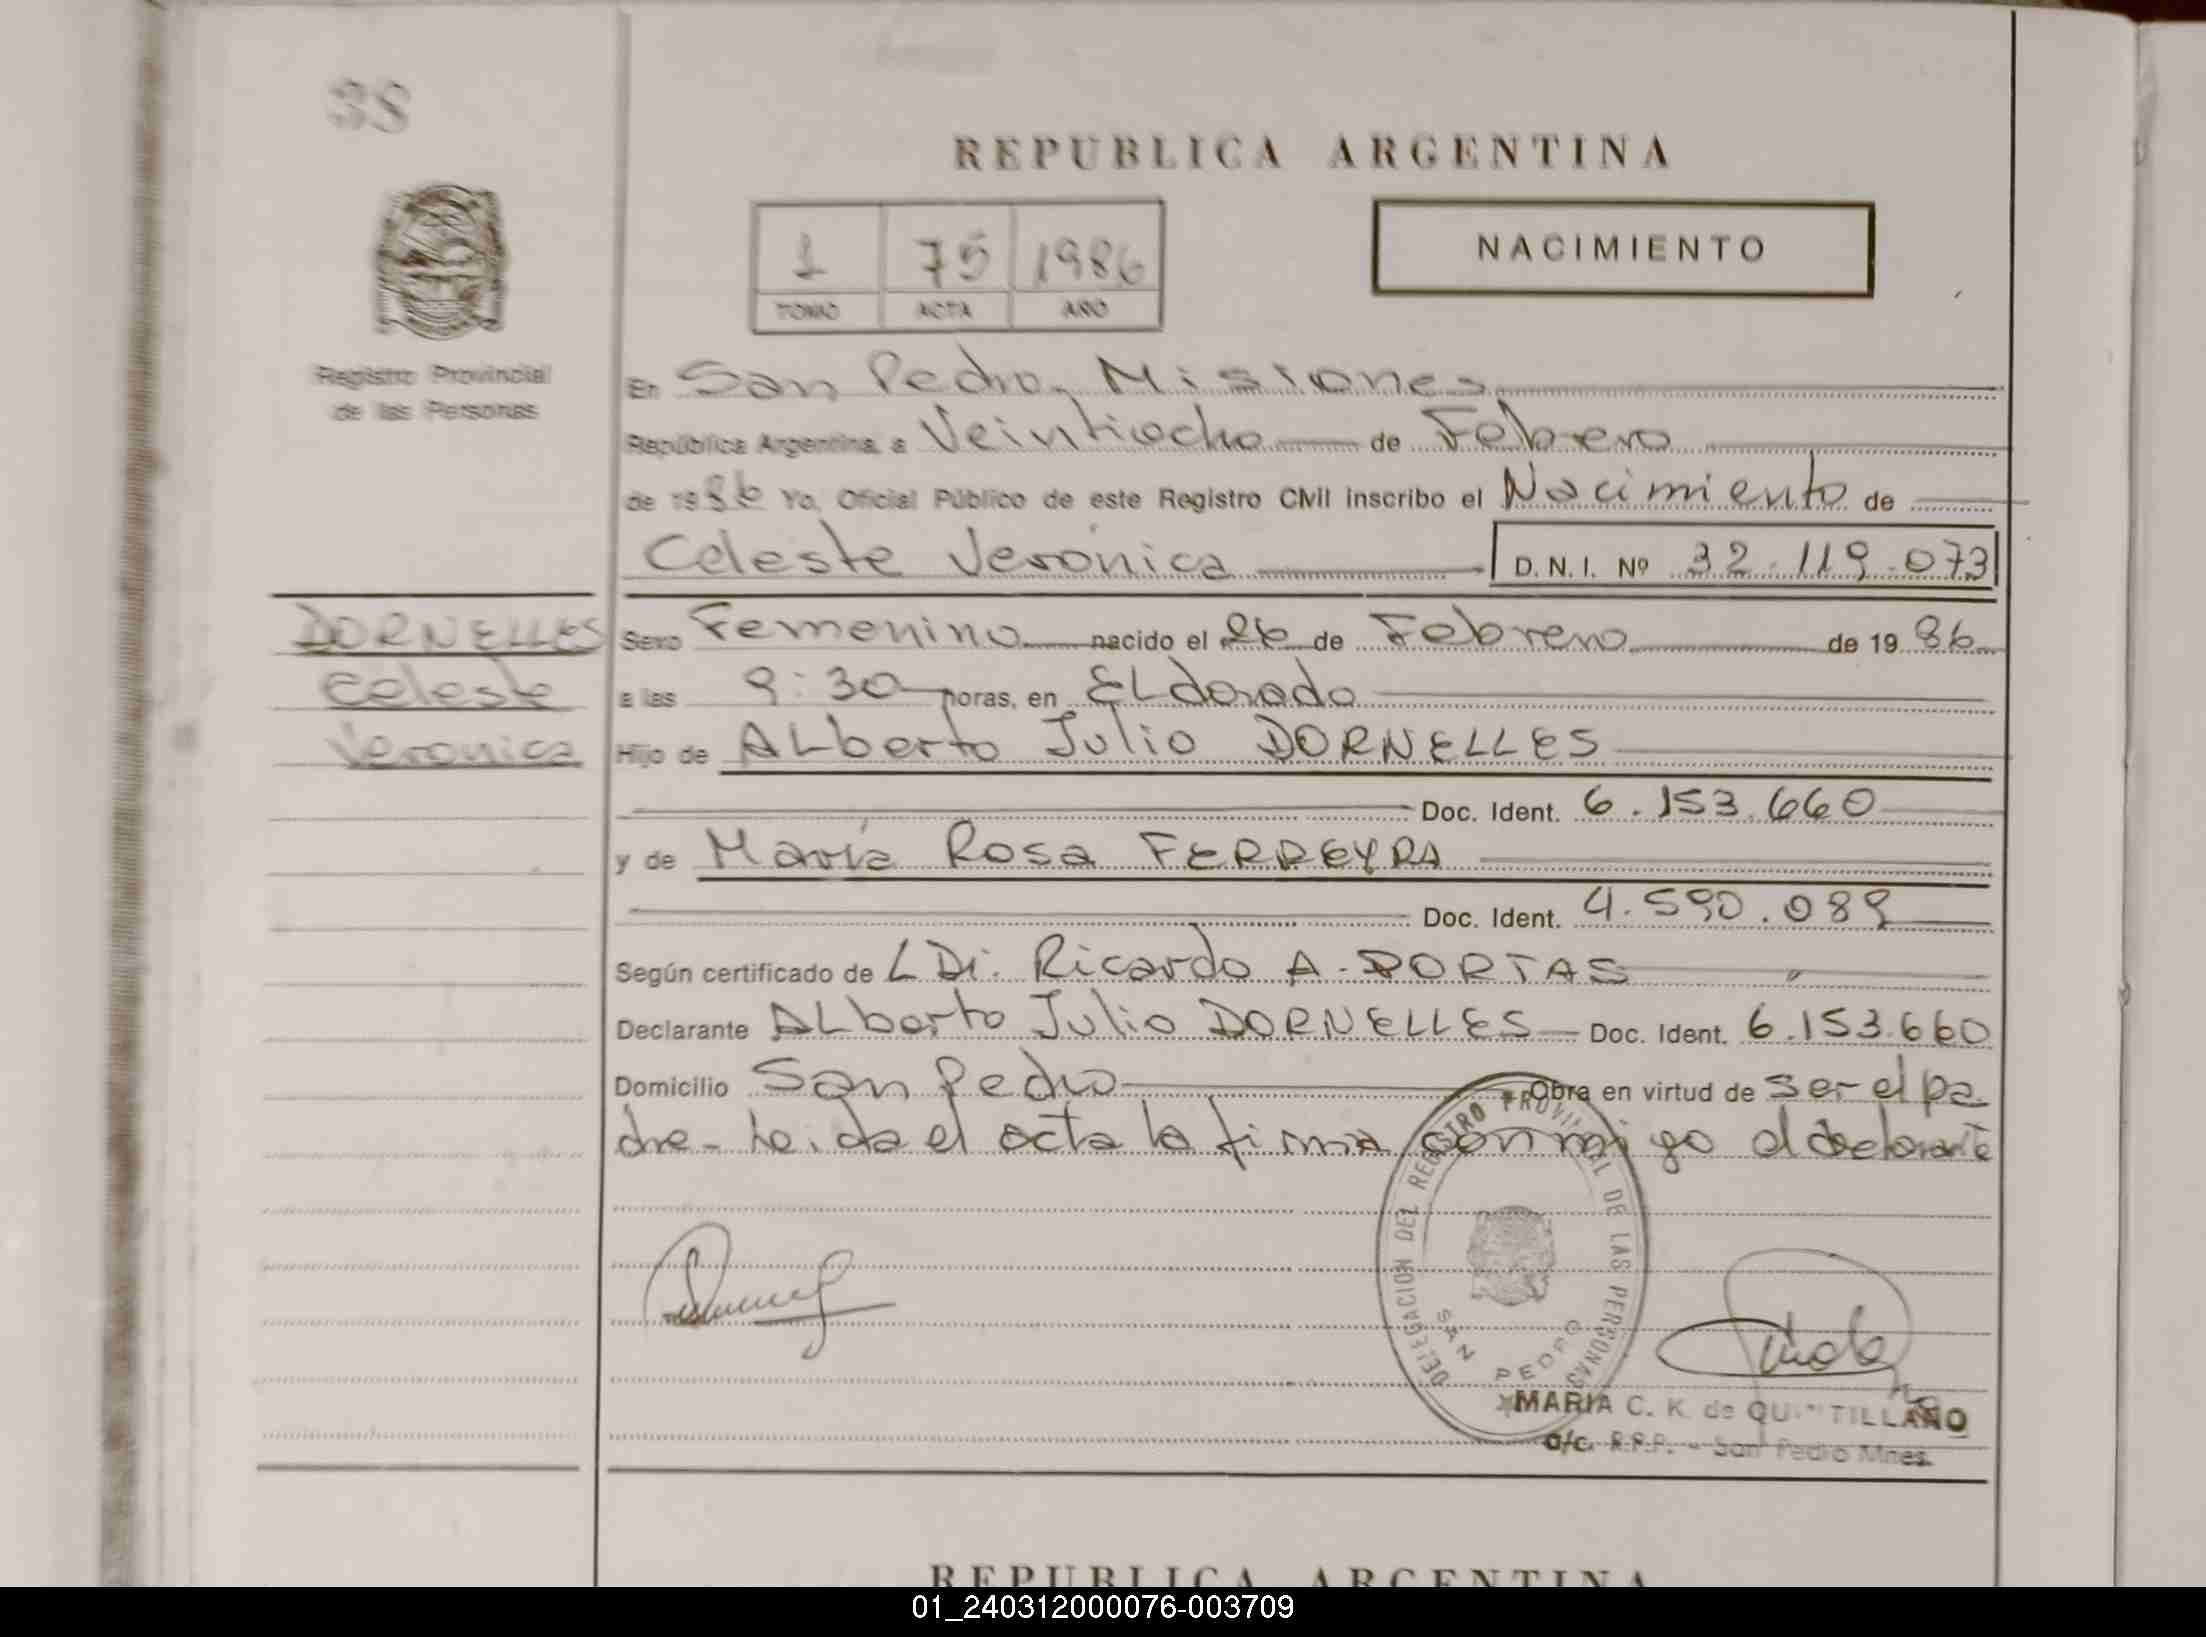 38
REPUBLICA ARGENTINA
1 75 1986
TOMO ACTA AÑO
NACIMIENTO
Registro Provincial
de las Personas
En San Pedro, Misiones
República Argentina, a Veintiocho de Febrero
de 1986 Yo, Oficial Público de este Registro Civil inscribo el Nacimiento de
Celeste Verónica D.N.I. Nº 32.119.073
DORNELLES
Celeste
Veronica
Sexo Femenino nacido el 26 de Febrero de 1986
a las 9:30 horas, en ELdorado
Hijo de ALberto Julio DORNELLES
Doc. Ident. 6.153.660
y de María Rosa FERREYRA
Doc. Ident. 4.590.089
Según certificado de Ricardo A. PORTAS
Declarante ALberto Julio DORNELLES Doc. Ident. 6.153.660
Domicilio San Pedro Obra en virtud de ser el pa
dre - Leida el acta la firma conmigo el declarante
DELEGACION DEL REGISTRO PROVINCIAL DE LAS PERSONAS
SAN PEDRO
MARIA C. K. de QUINTILLANO
a/c. R.P.P. - San Pedro Mnes.
REPUBLICA ARGENTINA
01_240312000076-003709